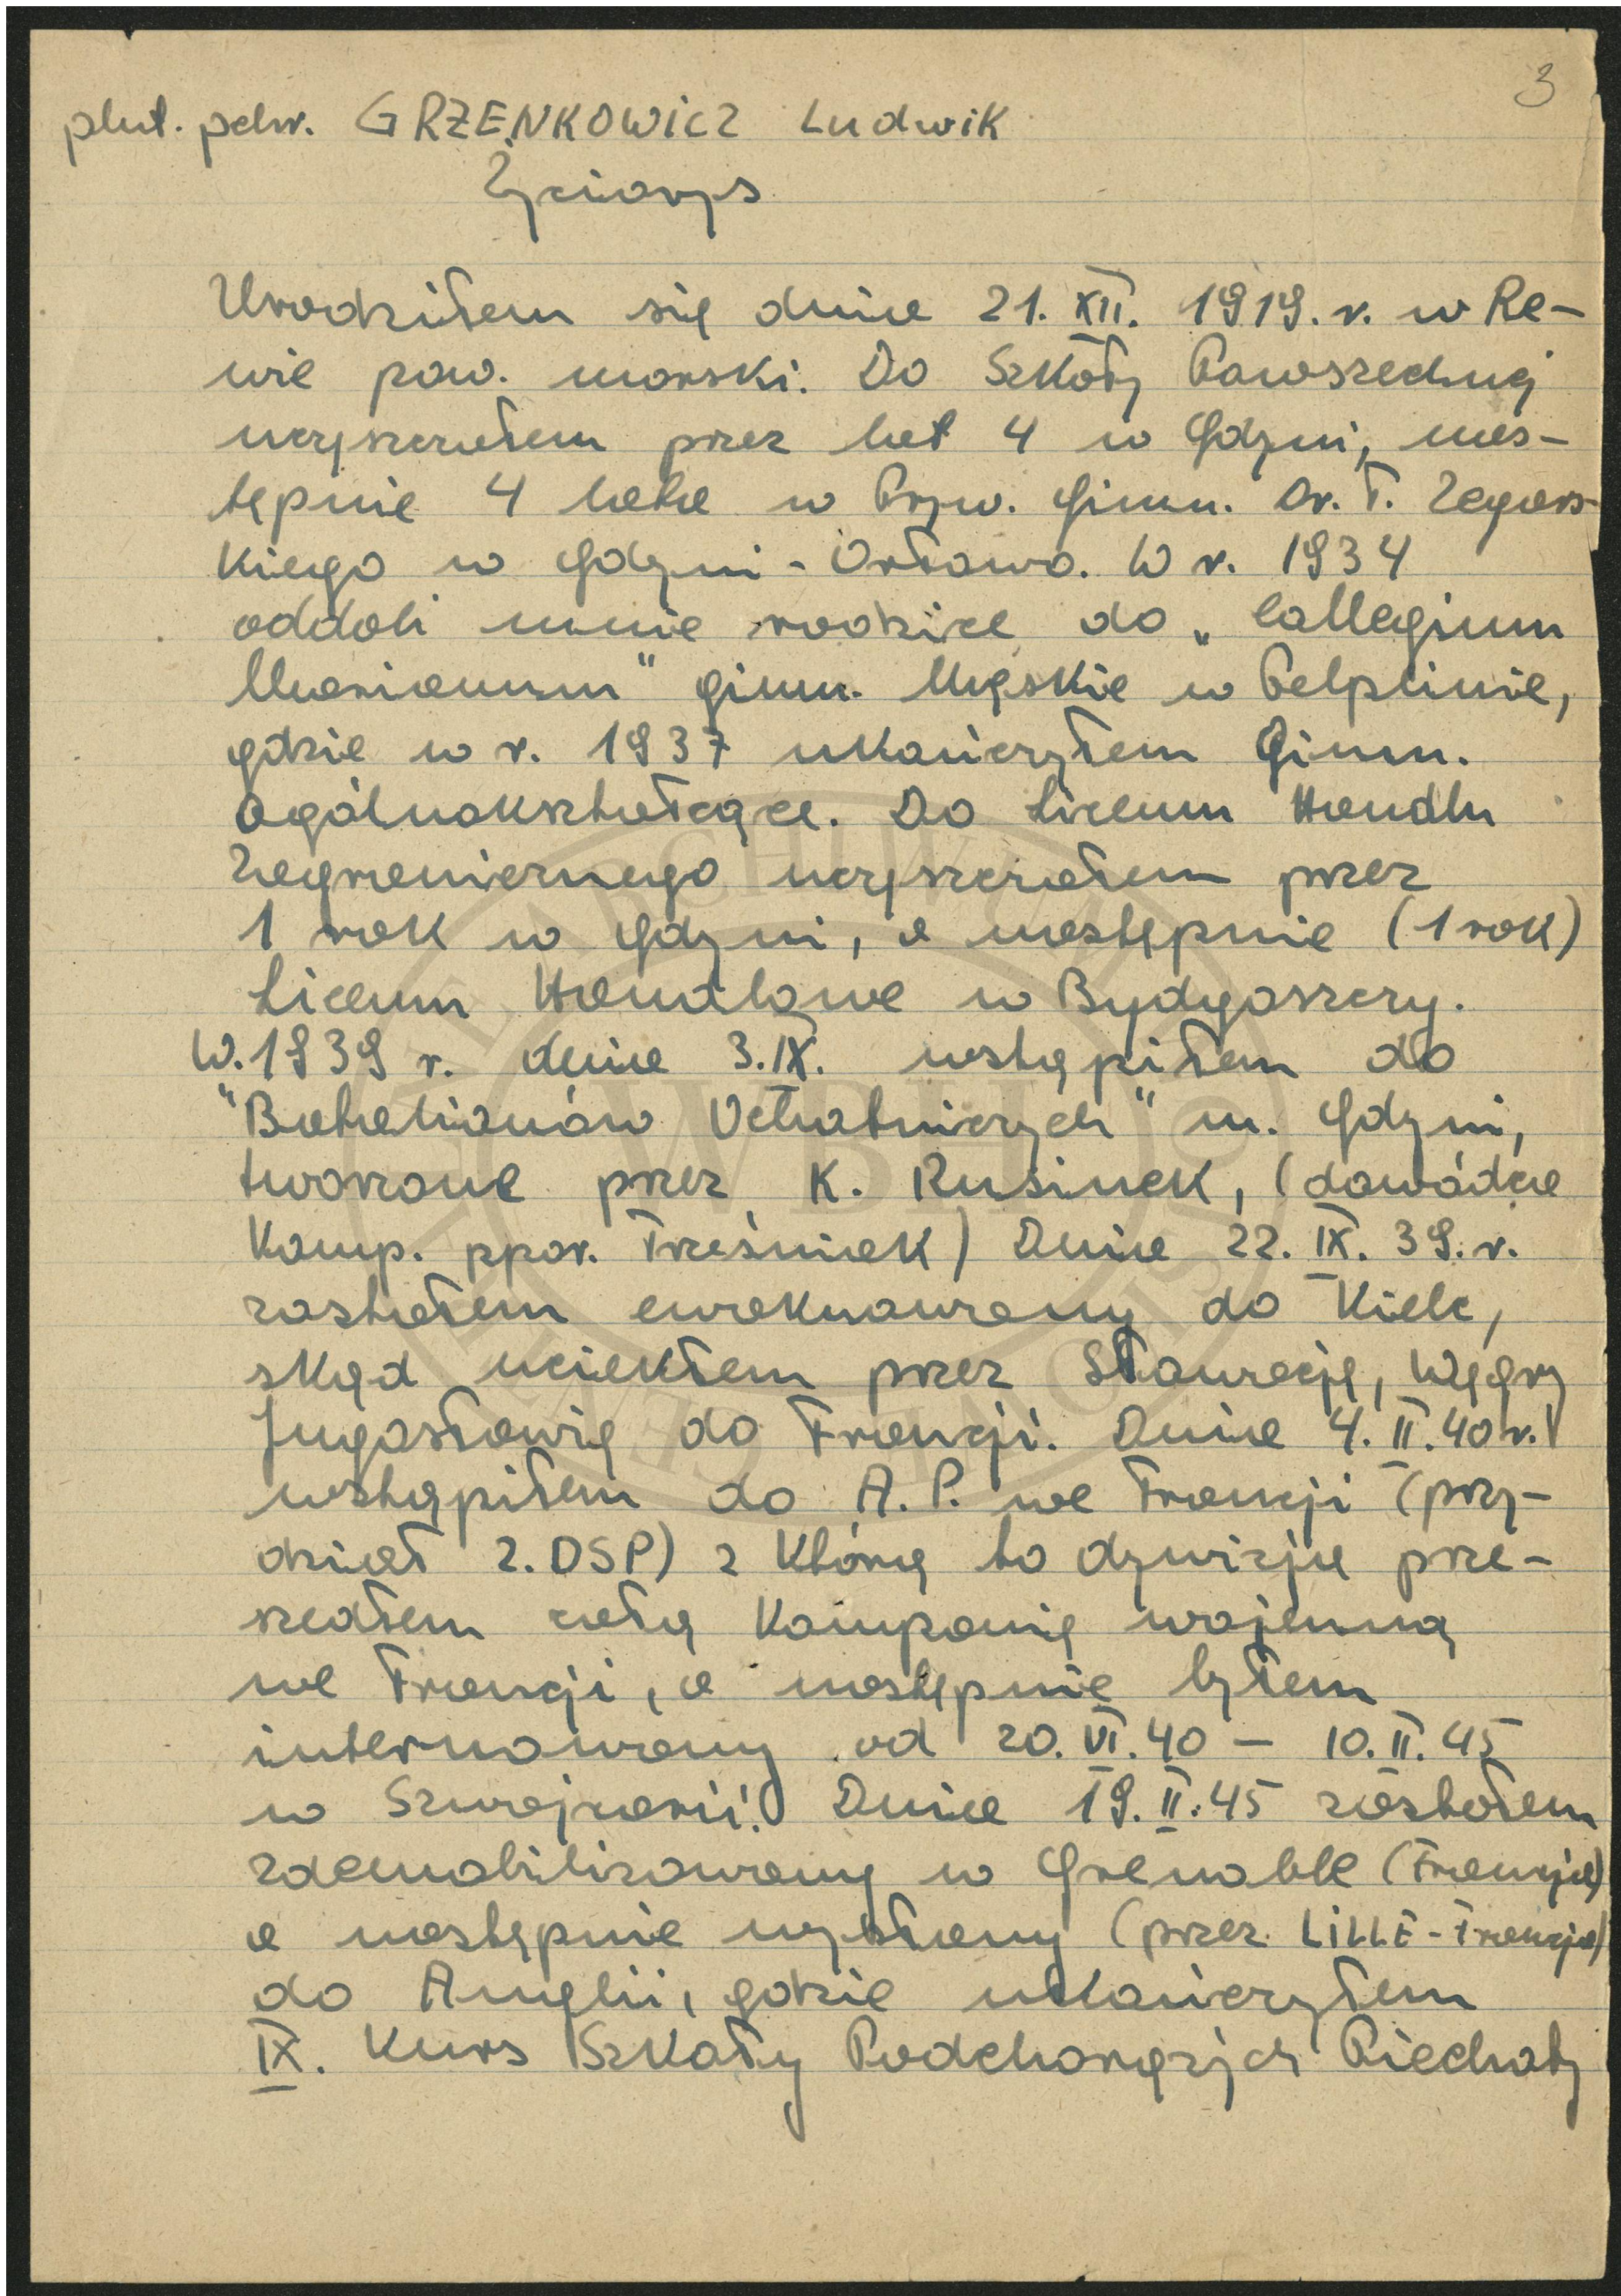 3
plut. pchr. GRZENKOWICZ Ludwik
Życiorys
Urodziłem się dnia 21. XII. 1919. r. w Re-
wie pow. morski. Do Szkoły Powszechnej
uczęszczałem przez lat 4 w Gdyni, nas-
tępnie 4 lata w Pryw. Gimn. Dr. T. Zegars-
kiego w Gdyni - Orłowo. W r. 1934
oddali mnie rodzice do „Collegium
Marianum" gimn. Męskie w Pelplinie,
gdzie w r. 1937 ukończyłem Gimn.
Ogólnokształcące. Do Liceum Handlu
Zagranicznego uczęszczałem przez
1 rok w Gdyni, a następnie (1 rok)
Liceum Handlowe w Bydgoszczy.
W. 1939 r. dnia 3. IX. wstąpiłem do
"Batalionów Ochotniczych" m. Gdyni,
tworzone przez K. Rusinek, (dowódca
Komp. ppor. Trześniak) Dnia 22. IX. 39. r.
zostałem ewakuowany do Kielc,
skąd uciekłem przez Słowację, Węgry
Jugosławię do Francji. Dnia 4. II. 40 r.
wstąpiłem do A. P. we Francji (przy-
dział 2. DSP) z Którą to dywizją prze-
szedłem całą Kampanię wojenną
we Francji, a następnie byłem
internowany od 20. VI. 40 - 10. II. 45
w Szwajcarii. Dnia 19. II. 45 zostałem
zdemobilizowany w Grenoble (Francja)
a następnie wysłany (przez LILLE - Francja)
do Anglii, gdzie ukończyłem
IX. Kurs Szkoły Podchorążych Piechoty
ARCHIWUM
WBH